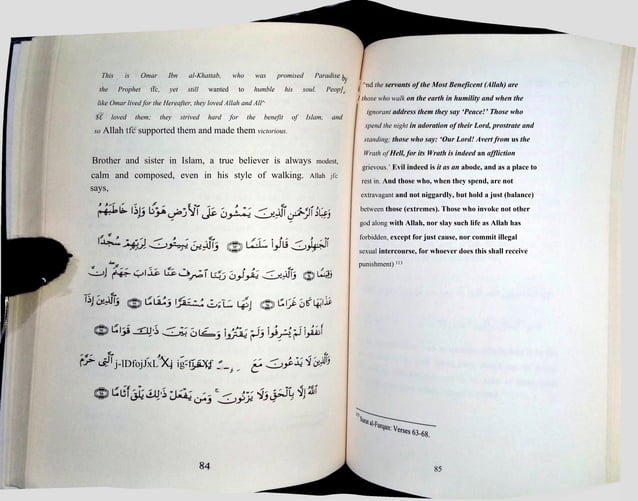 This is Omar Ibn al-Khattab, who was promised Paradise by
the Prophet tfc, yet still wanted to humble his soul. Peopj,
like Omar lived for the Hereafter, they loved Allah and All^
loved them; they strived hard for the benefit of Islam, and
so Allah tfc supported them and made them victorious.
Brother and sister in Islam, a true believer is always modest,
calm and composed, even in his style of walking. Allah jfc
says,
وَعِبَادُ ٱلرَّحْمَٰنِ ٱلَّذِينَ يَمْشُونَ عَلَى ٱلْأَرْضِ هَوْنًا وَإِذَا خَاطَبَهُمُ
ٱلْجَٰهِلُونَ قَالُوا۟ سَلَٰمًا ۝ وَٱلَّذِينَ يَبِيتُونَ لِرَبِّهِمْ سُجَّدًا
وَقِيَٰمًا ۝ وَٱلَّذِينَ يَقُولُونَ رَبَّنَا ٱصْرِفْ عَنَّا عَذَابَ جَهَنَّمَ إِنَّ
عَذَابَهَا كَانَ غَرَامًا ۝ إِنَّهَا سَآءَتْ مُسْتَقَرًّا وَمُقَامًا ۝ وَٱلَّذِينَ إِذَآ
أَنفَقُوا۟ لَمْ يُسْرِفُوا۟ وَلَمْ يَقْتُرُوا۟ وَكَانَ بَيْنَ ذَٰلِكَ قَوَامًا ۝
وَٱلَّذِينَ لَا يَدْعُونَ مَعَ ٱلَّتِى حَرَّمَ
ٱللَّهُ إِلَّا بِٱلْحَقِّ وَلَا يَزْنُونَ ۚ وَمَن يَفْعَلْ ذَٰلِكَ يَلْقَ أَثَامًا ۝
84
'^nd the servants of the Most Beneficent (Allah) are
those who walk on the earth in humility and when the
ignorant address them they say 'Peace!' Those who
spend the night in adoration of their Lord, prostrate and
standing; those who say: 'Our Lord! Avert from us the
Wrath of Hell, for its Wrath is indeed an affliction
grievous.' Evil indeed is it as an abode, and as a place to
rest in. And those who, when they spend, are not
extravagant and not niggardly, but hold a just (balance)
between those (extremes). Those who invoke not other
god along with Allah, nor slay such life as Allah has
forbidden, except for just cause, nor commit illegal
sexual intercourse, for whoever does this shall receive
punishment) 113
Surat al-Furqan: Verses 63-68.
85